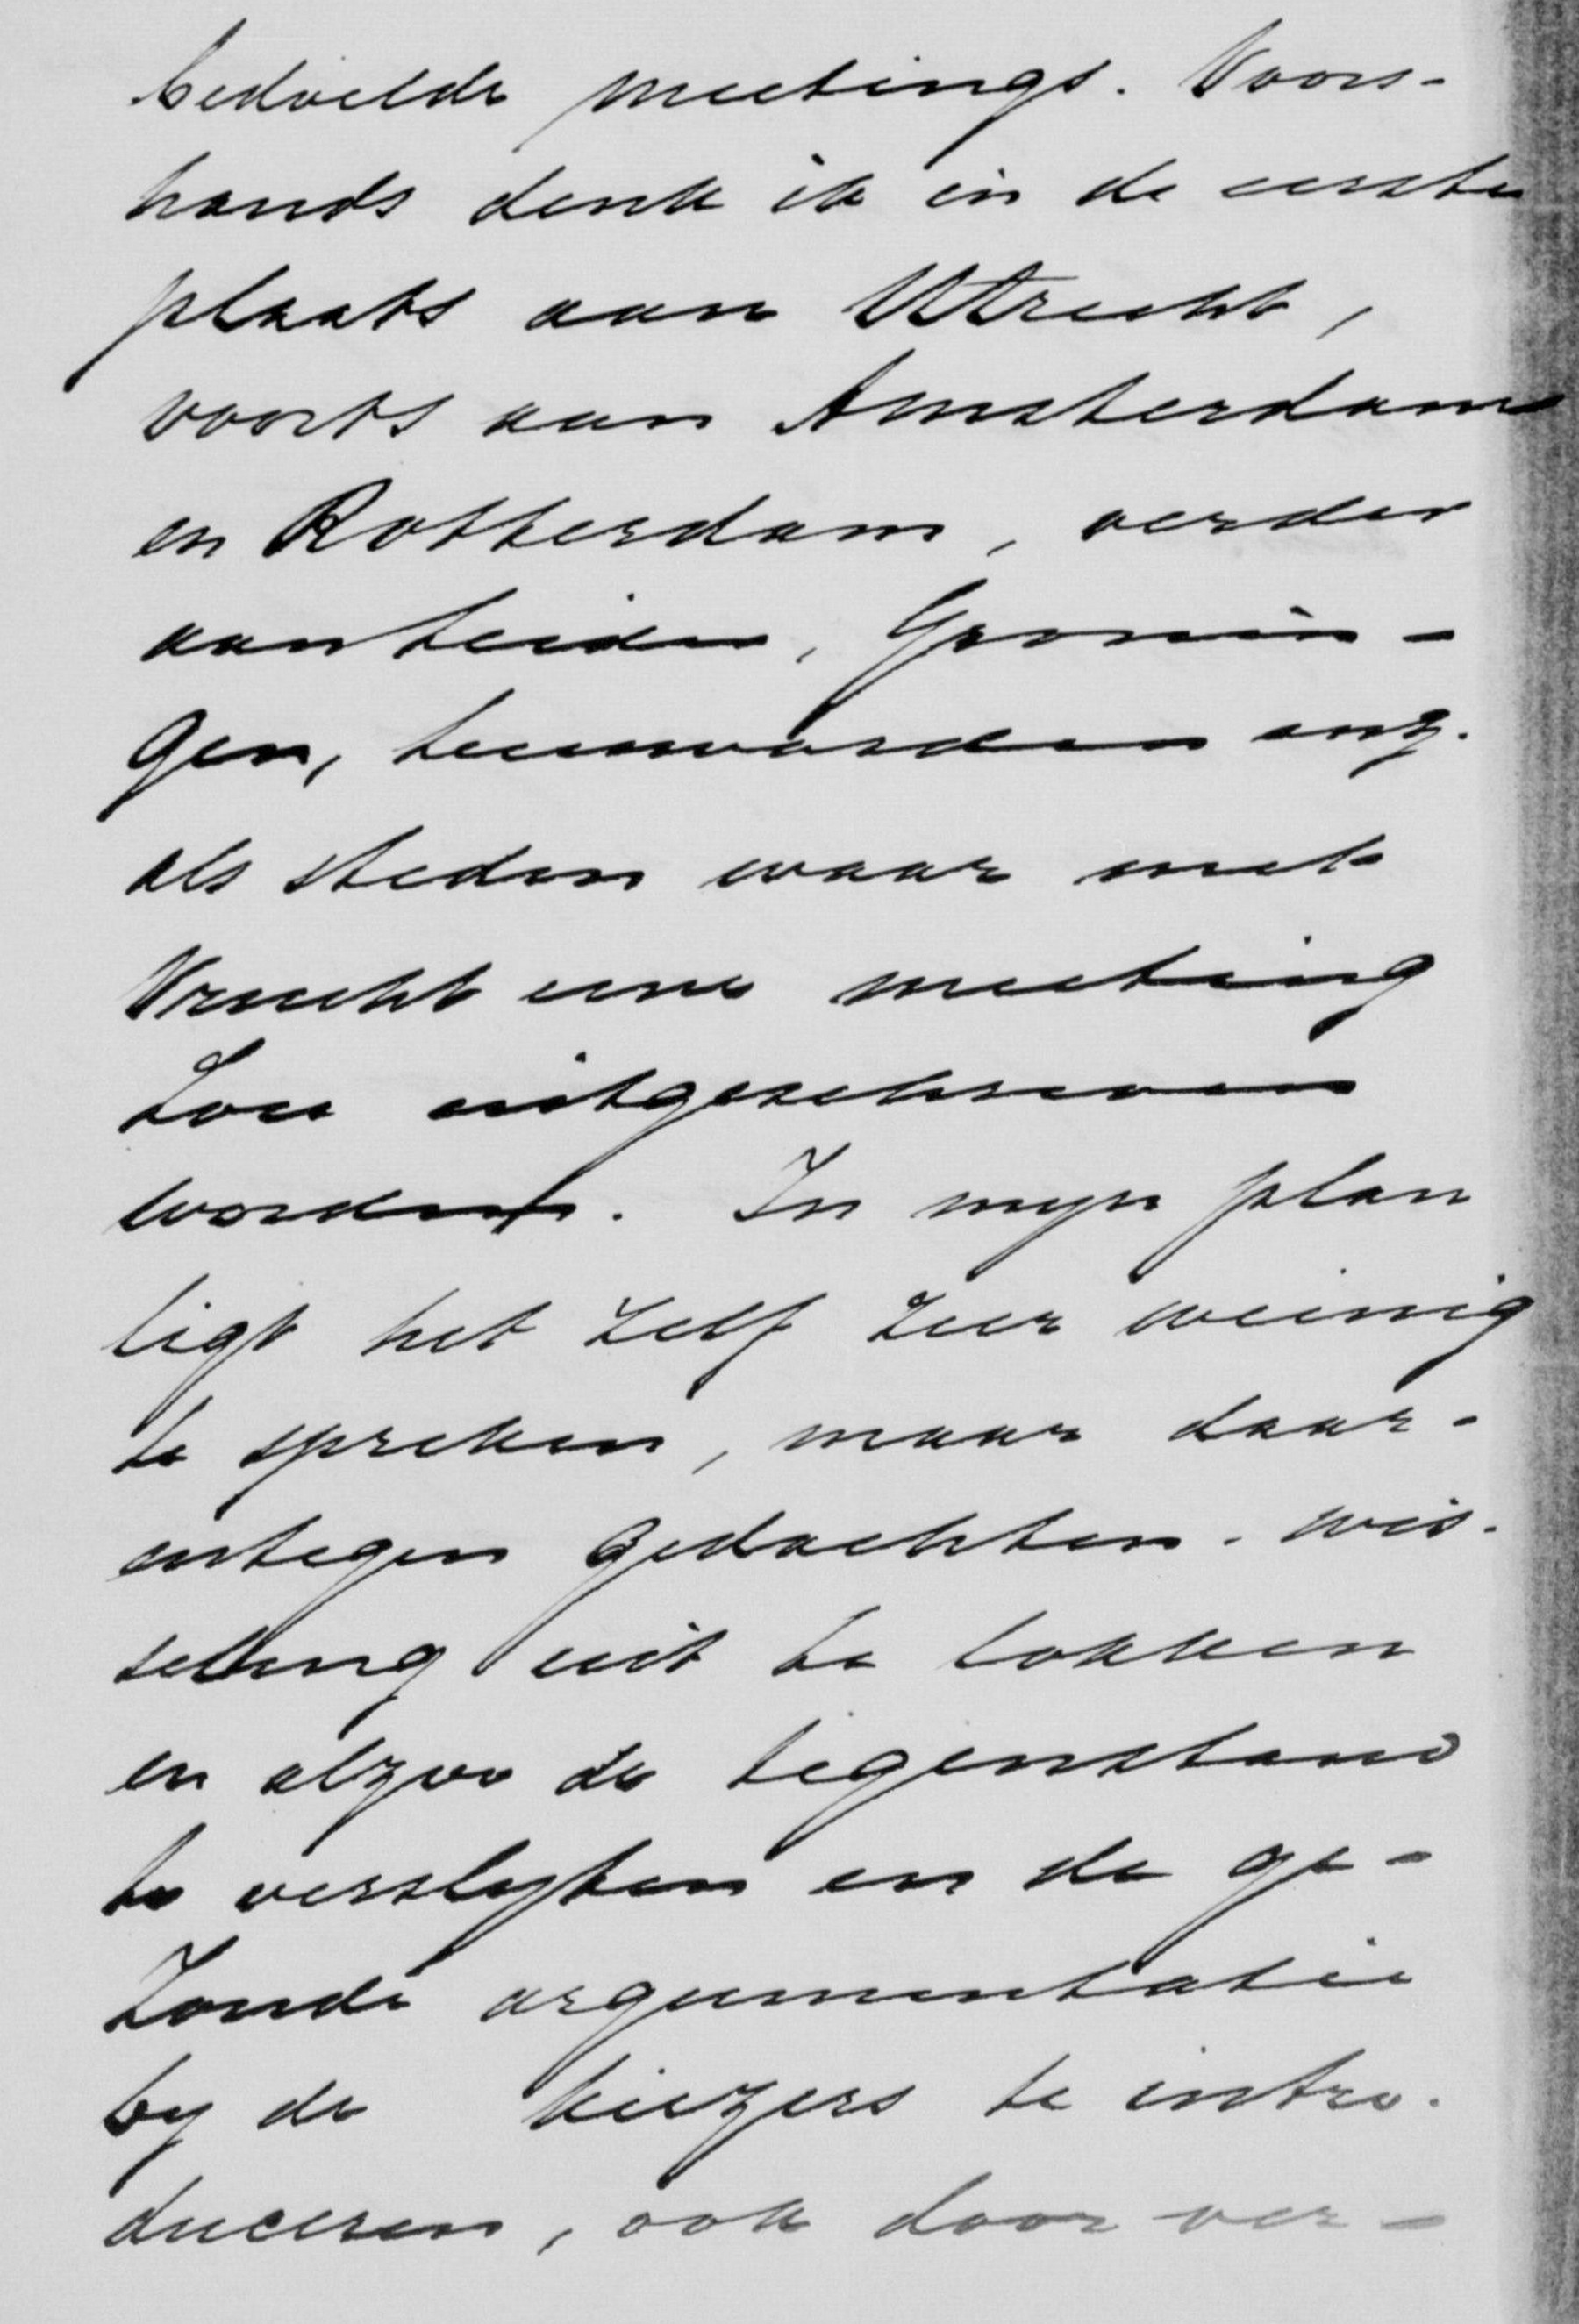 bedoelde meetings. Voors-
hands denk ik in de eerste
plaats aan Utrecht,
voorts aan Amsterdam
en Rotterdam, verder
aan Leiden, Gronin-
gen, Leeuwarden enz.
als steden waar met
vrucht eene meeting
zou uitgeschreven
worden. In myn plan
ligt het zelf zeer weinig
te spreken, maar daar-
entegen gedachten-wis-
seling uit te lokken
en alzoo de tegenstand
te verslyten en de ge-
zonde argumentatie
by de kiezers te intro-
duceren, ook door ver-